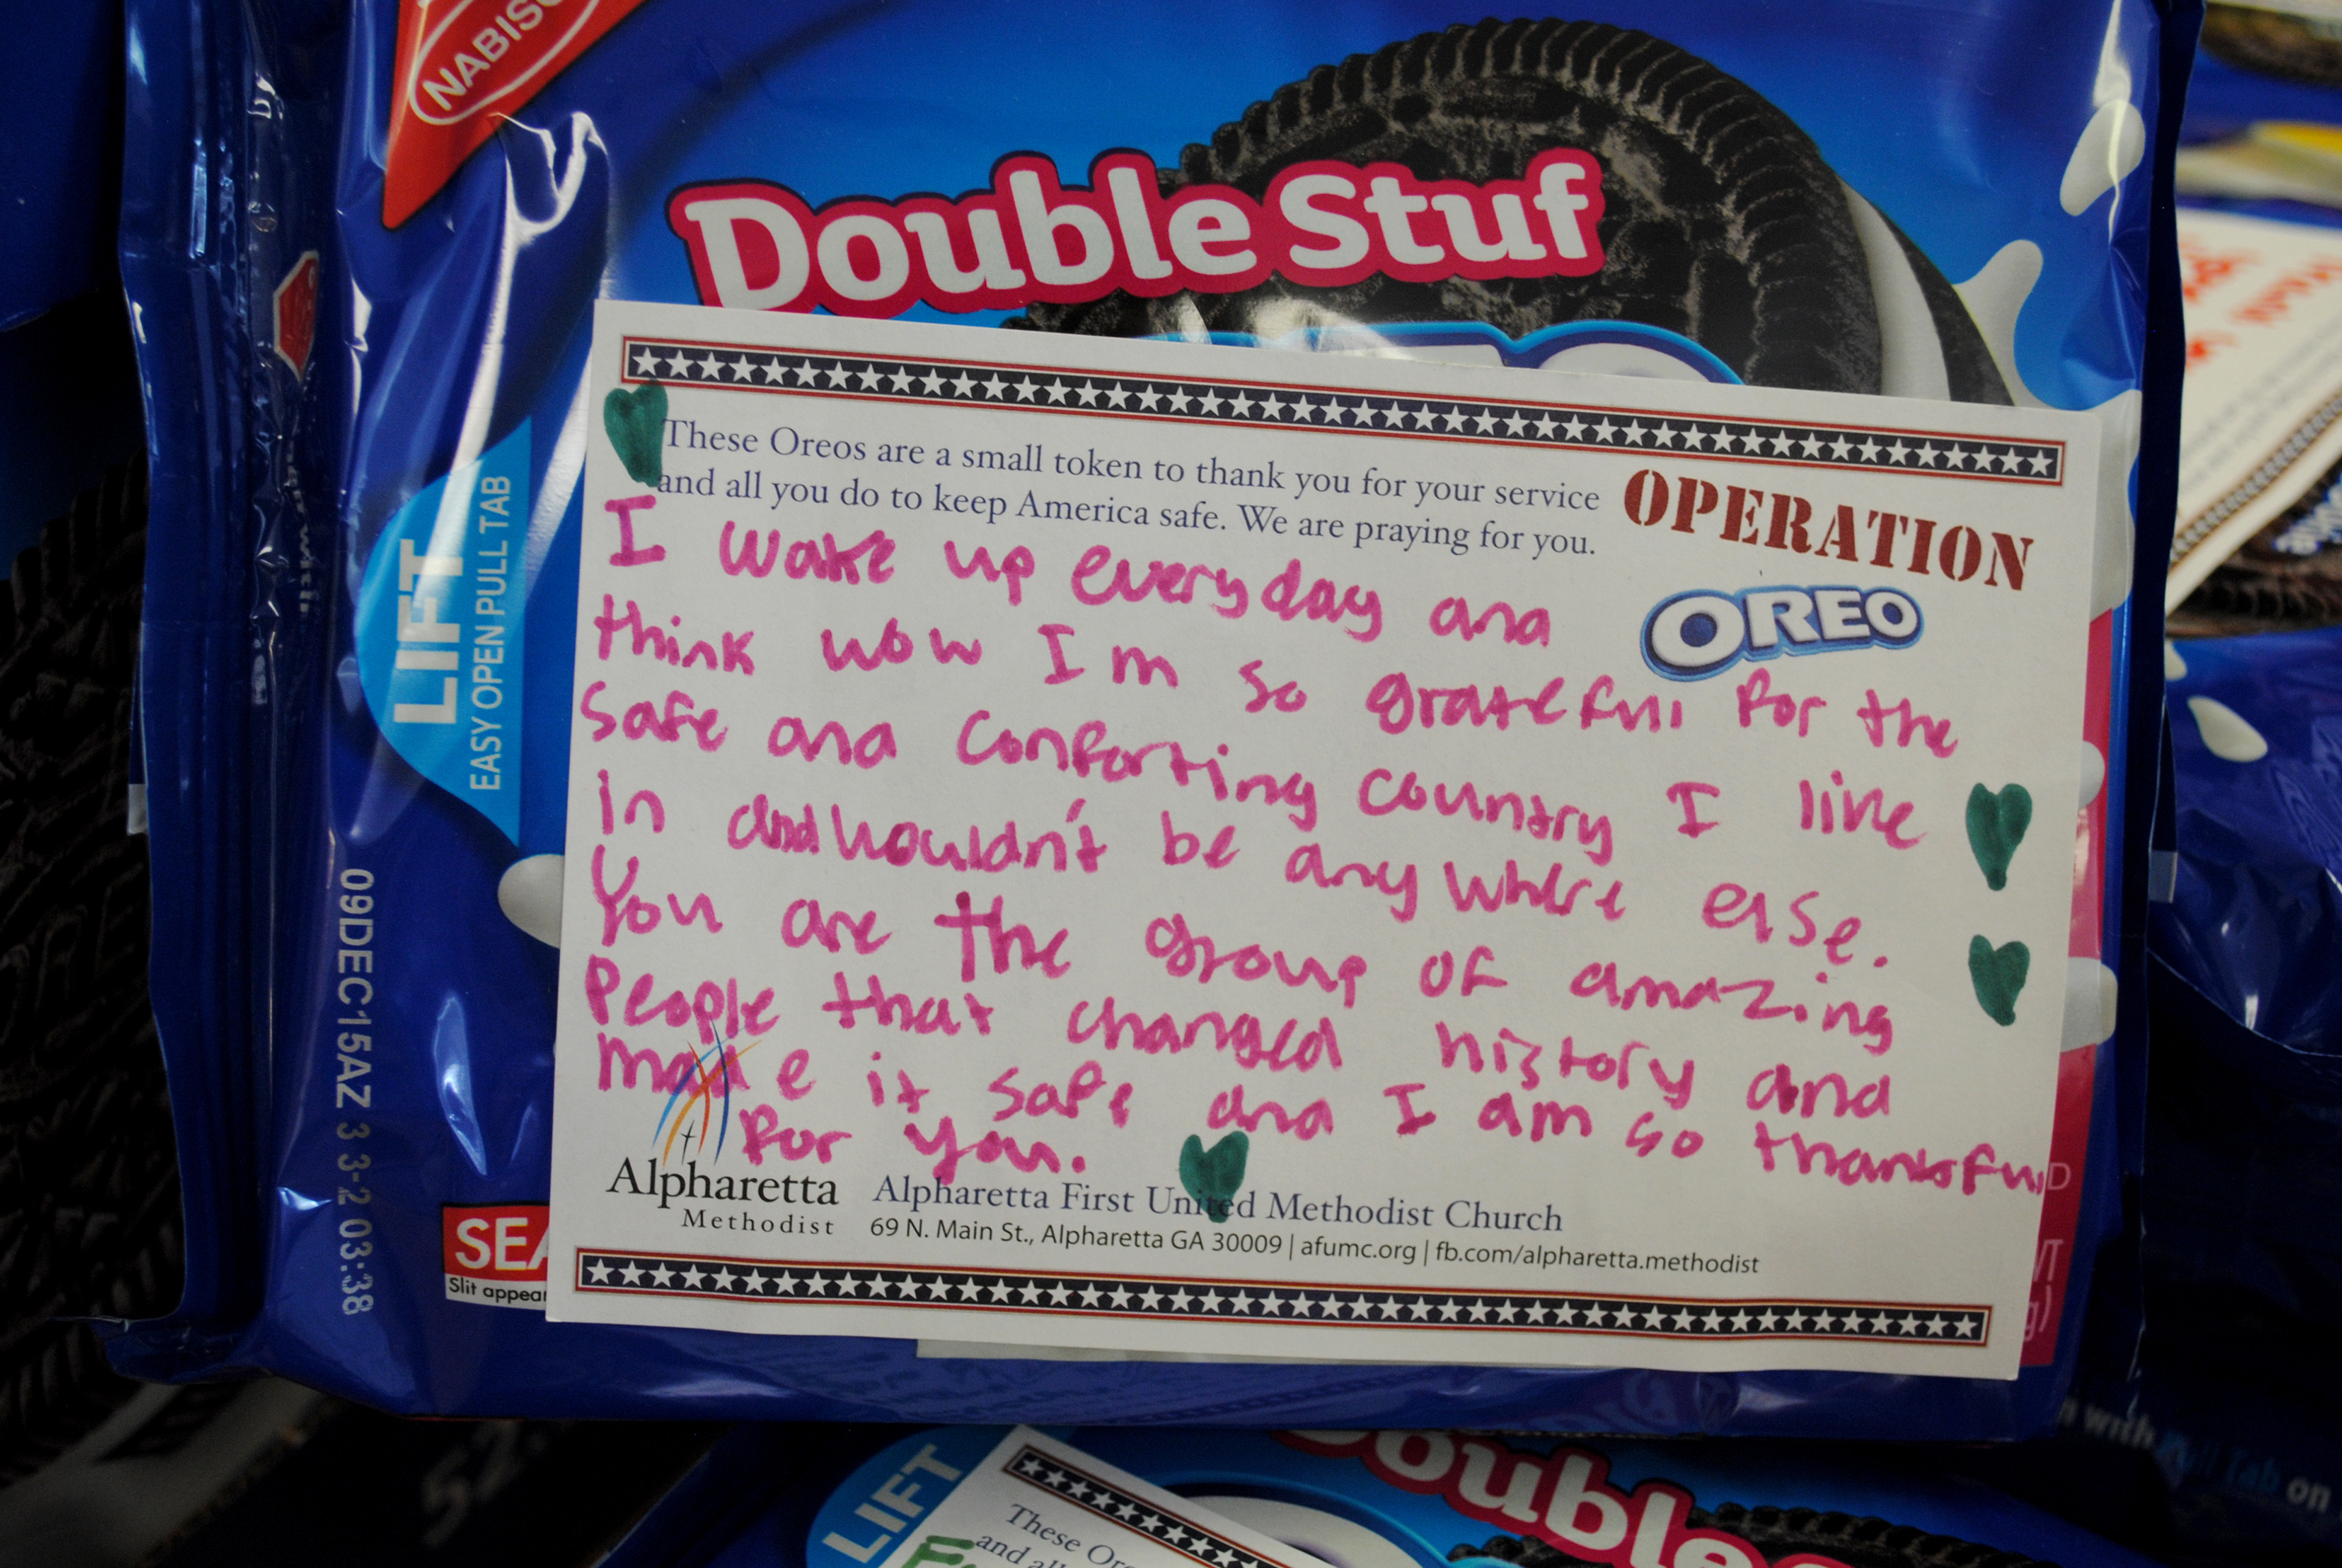 NABISCO
Double Stuf
LIFT
EASY OPEN PULL TAB
These Oreos are a small token to thank you for your service
and all you do to keep America safe. We are praying for you.
OPERATION
OREO
I wake up everyday and
think wow I'm so grateful for the
safe and conforting country I live
in and wouldn't be any where else.
You are the group of amazing
people that changed history and
made it safe and I am so thankful
for you.
Alpharetta
Methodist
Alpharetta First United Methodist Church
69 N. Main St., Alpharetta GA 30009 | afumc.org | fb.com/alpharetta.methodist
09DEC15AZ 3 3-2 03:38
SEA
Slit appear
with
Tab on
LIFT
Double
These Ore
and all